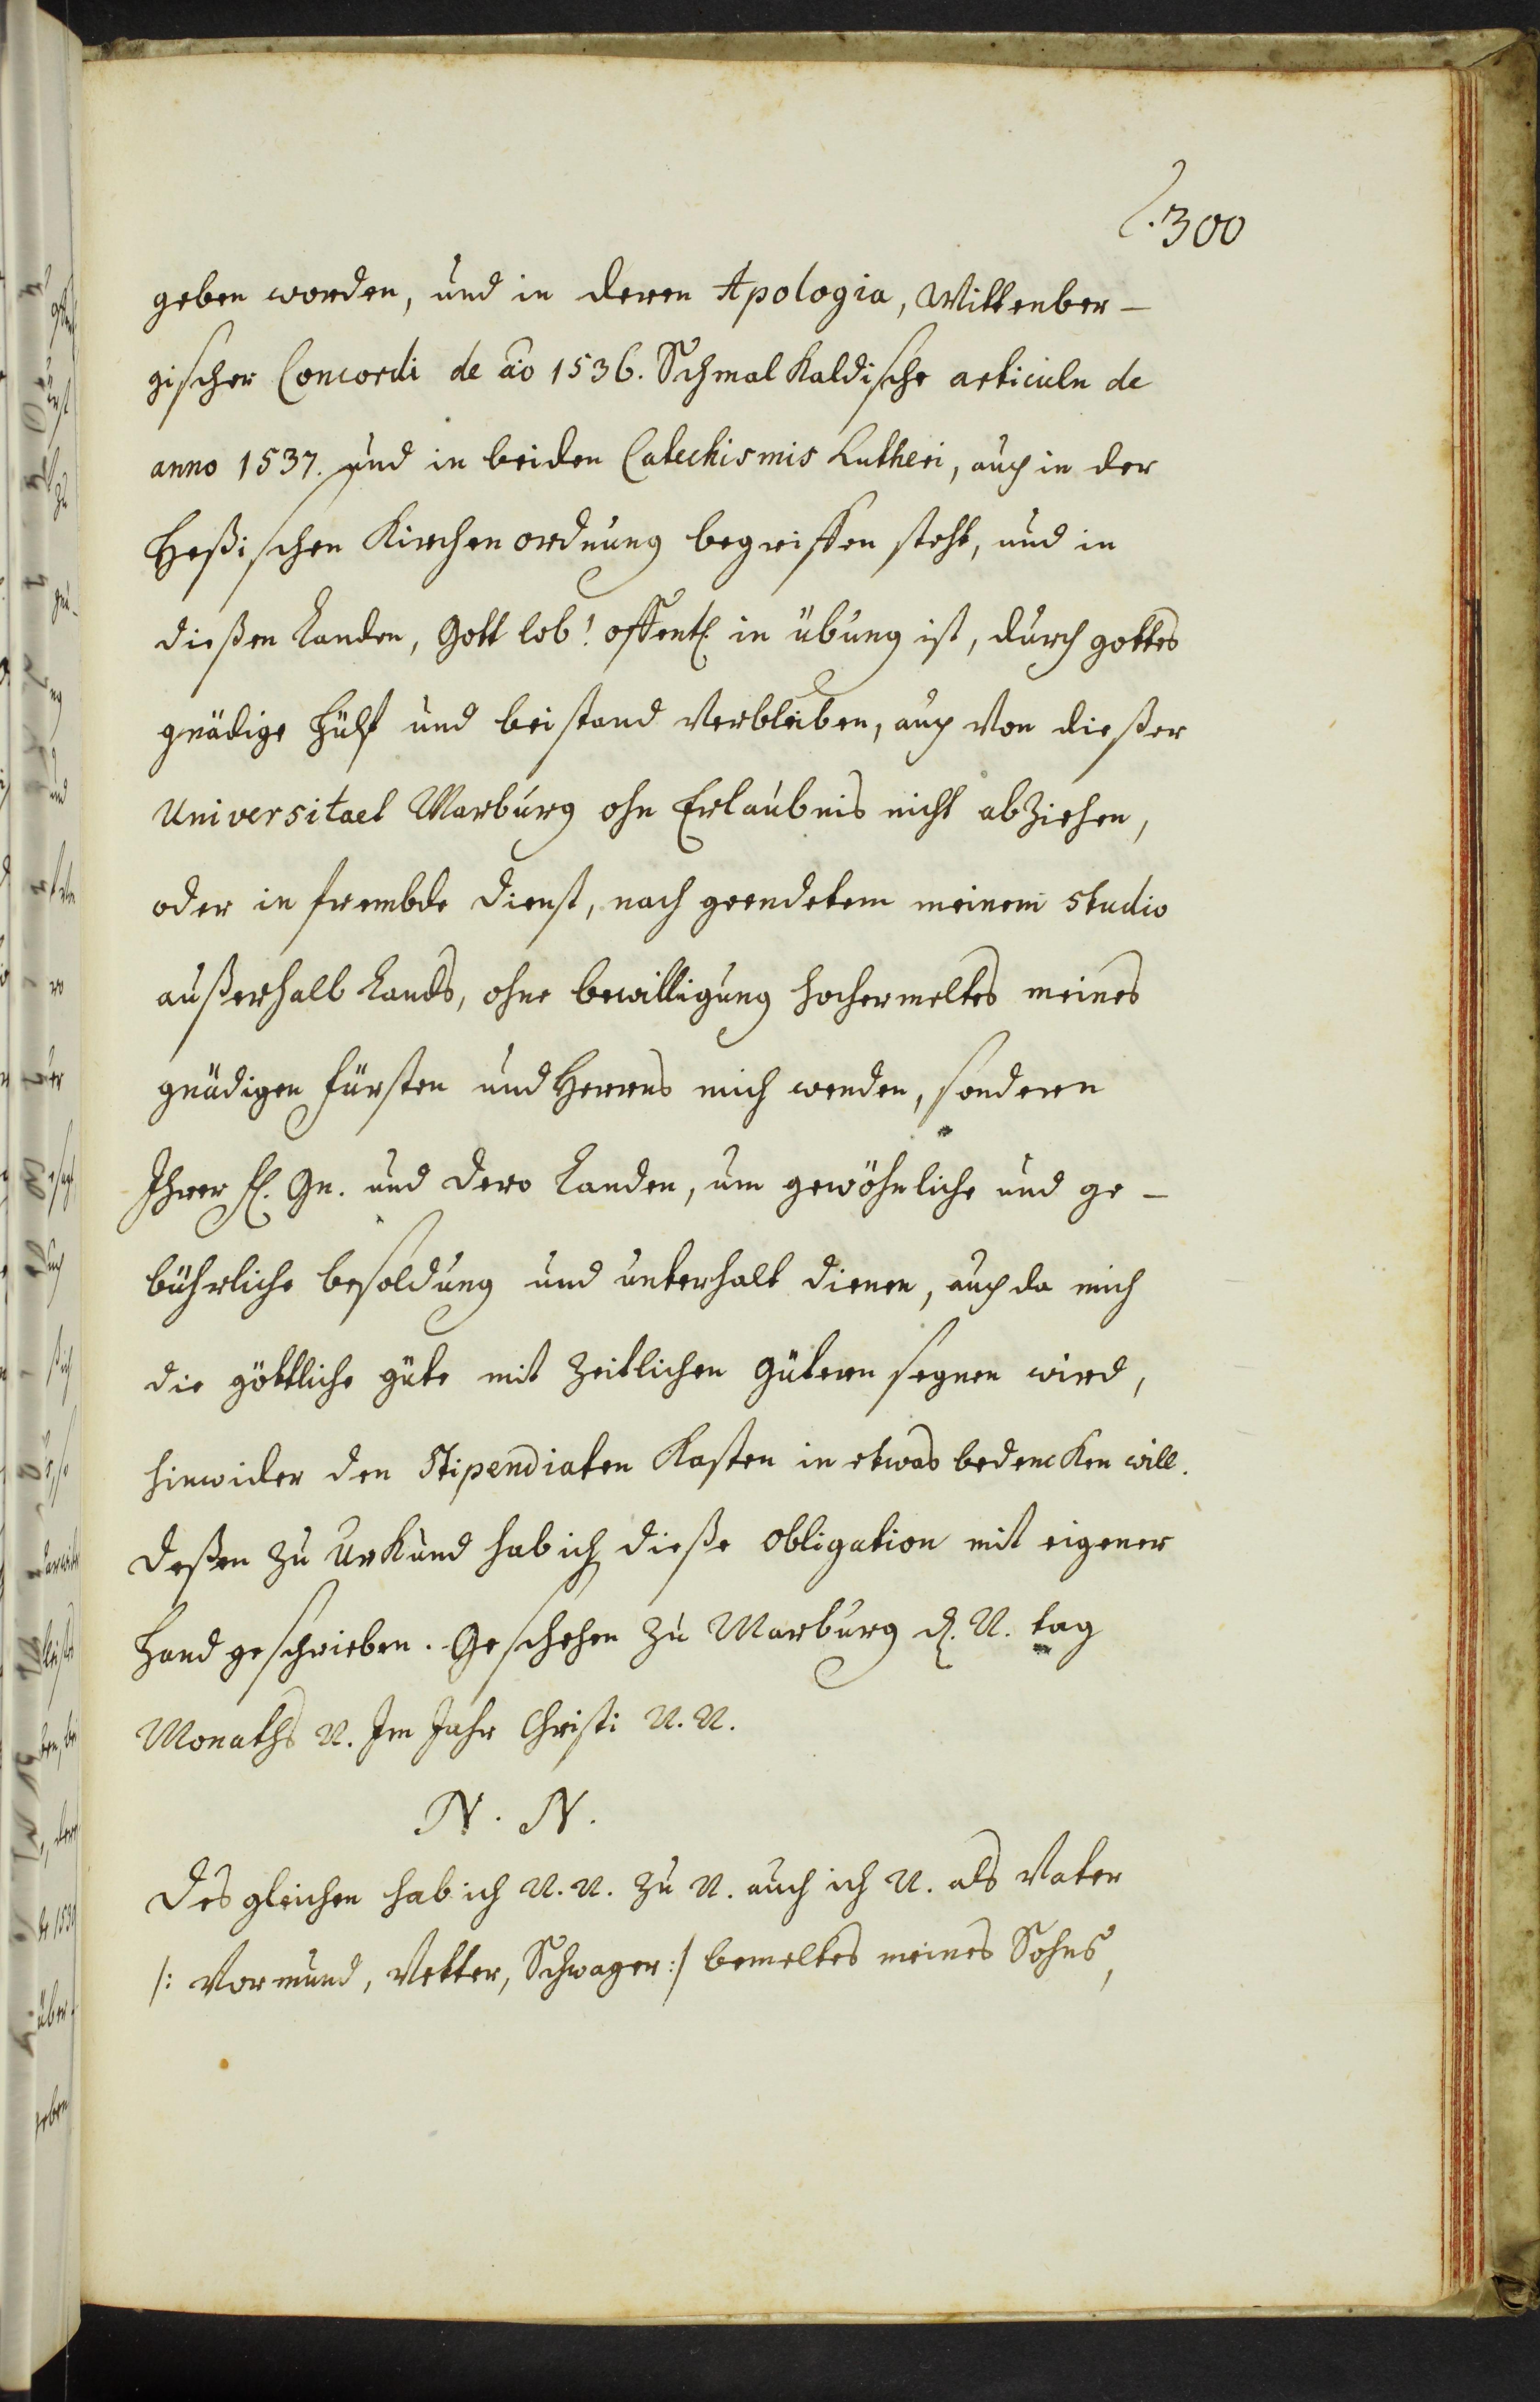 300
geben worden, und in deren Apologia, Wittenber-
gischer Concordi de ao 1536. Schmalkaldische articuln de
anno 1537. und in beiden Catechismis Lutheri, auch in der
Heßischen Kirchenordnung begriffen steht, und in
dießen Landen, Gott lob! offentl. in übung ist, durch gottes
gnädige Hülf und beistand verbleiben, auch von dießer
Universitaet Marburg ohn Erlaubnis nicht abziehen,
oder in frembde Dienst, nach geendetem meinem studio
außerhalb Lands, ohne bewilligung hochermeltes meines
gnädigen Fürsten und Herrns mich wenden, sondern
Ihrer fl. Gn. und dero Landen, um gewöhnliche und ge-
bührliche besoldung und unterhalt dienen, auch da mich
die göttliche güte mit zeitlichen Gütern segnen wird,
hinwider den Stipendiaten Kasten in etwas bedencken will.
Deßen zu Urkund hab ich dieße obligation mit eigener
Hand geschrieben. Geschehen zu Marburg d. N. tag
Monaths N. Im Jahr Christi N. N.
N. N.
Desgleichen hab ich N. N. zu N. auch ich N. als Vater
/: Vormund, Vetter, Schwager :/ bemeltes meines Sohns,